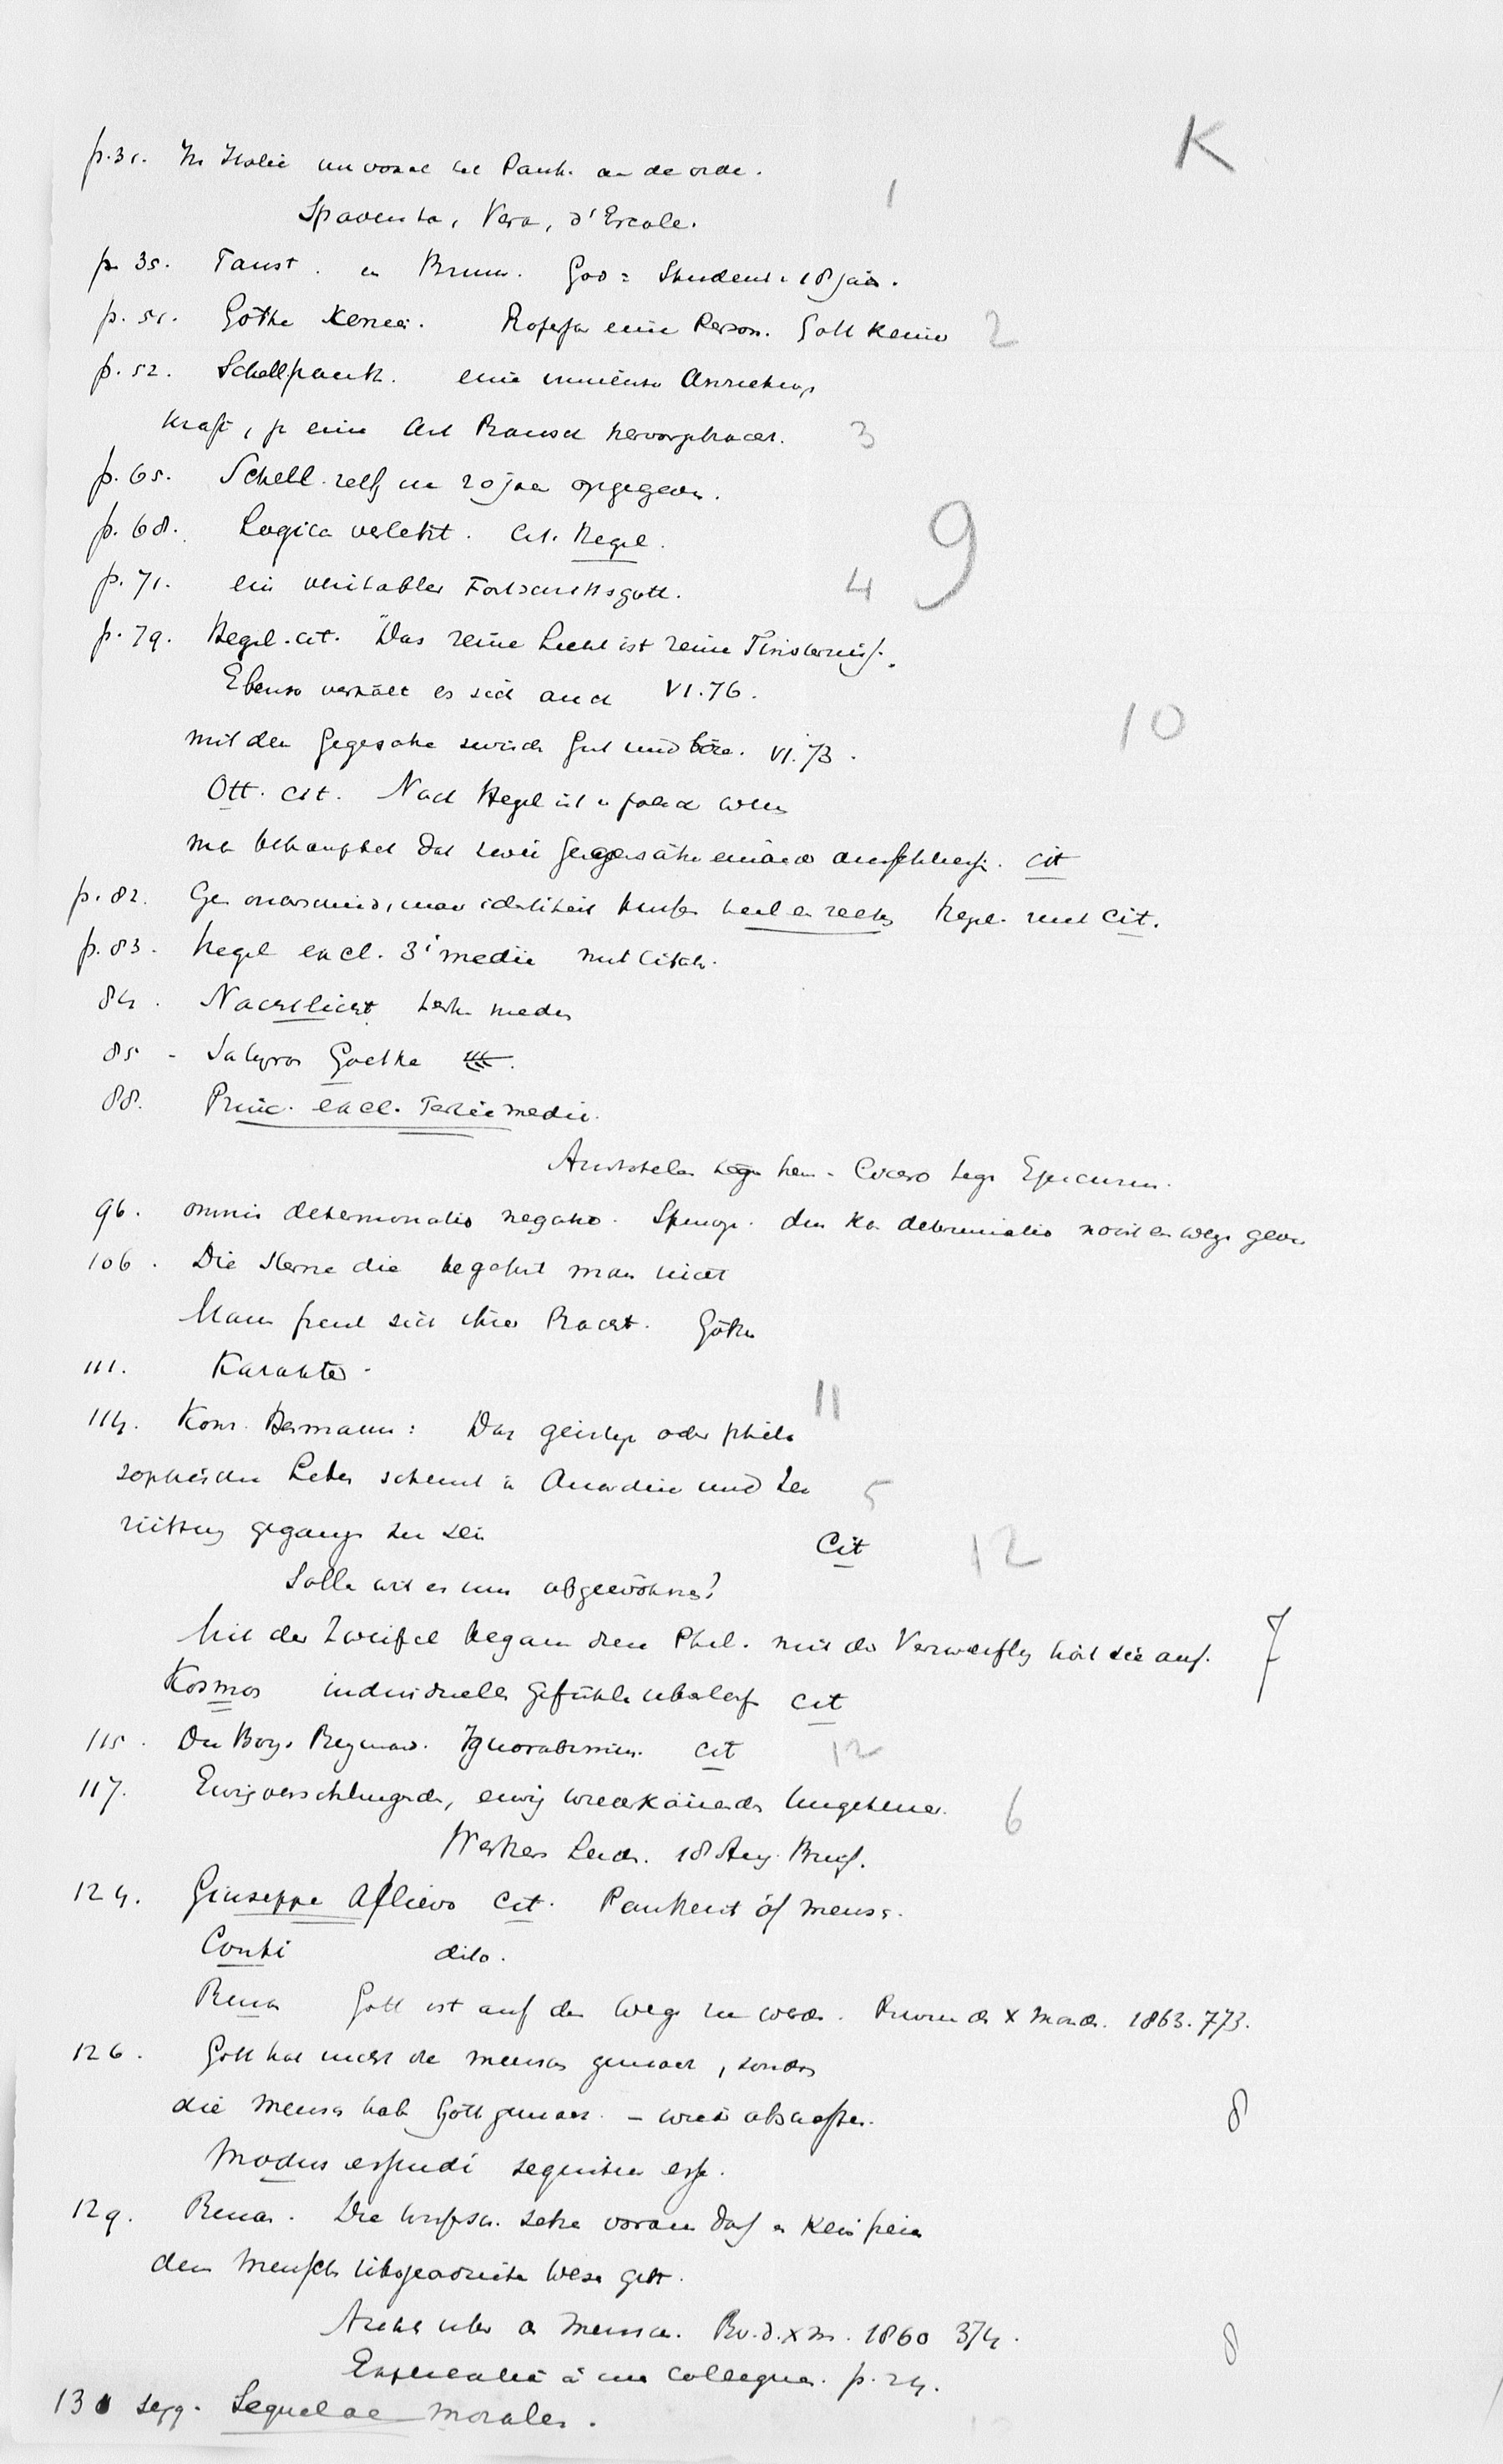 K
p. 31. In Italie un vooral het Panth. an de orde.
1
Spaventa, Vera, d'Ercole.
p. 35. Faust. en Brum. God = Student. 18 jaar.
p. 51. Göthe Xenien. Professor eine Person. Gott keine 2
p. 52. Schell panth. eine immense Anziehungs
kraft, ja eine Art Rausch hervorgebracht. 3
p. 65. Schell. zelf na 20 jaar opgegeven.
p. 68. Logica verletzt. Cit. Hegel. 9
p. 71. ein veritabler Fortschrittsgott. 4
p. 79. Hegel. cit. "Das reine Licht ist reine Finsterniss.
Ebenso verhält es sich auch VI. 76.
mit den Gegensatze zwisch Gut und böse. VI. 73. 10
Ott. cit. Nach Hegel ist es falsch wenn
man behauptet dat zwei Gegensätze einander ausschliessen. cit
p. 82. Geen onderscheid, maar identiteit tusschen heel en recht Hegel. met cit.
p. 83. Hegel excl. 3i medii met citat.
84. Nachtlicht tertium medium
85 - Satyros Goethe
88. Princ. excl. Tertii medii.
Aristoteles tegen hen - Cicero tegen Epicurus.
96. omnis determinatio negatio. Spinoza. dus kan determinatio nooit en wezen geven
106. Die Sterne die begehrt man nicht
Man freut sich ihrer Pracht. Göthe
111. Karakter - 11
114. Konr. Hermann: Das geistige oder philo
sophischen Leben scheint in Anarchie und Zer 5
rüttung gegangen zu sein Cit 12
Solle wir es uns abgewöhnen?
Mit der Zweifel begann den Phil. mit der Verzweiflung hört sie auf. 7
Kosmos individuelle Gefühle cit
115. Du Boys Reymond. Ignorabimus. cit 12
117. Ewig verschlingendes, ewig wiederkäuendes Ungeheuer. 6
Werthers Leiden. 18 Aug. Brief.
124. Giuseppe Allievo cit. Pantheist óf mensch.
Conti dito.
Renan Gott ist auf dem Wege zu werden. Revue des X mondes. 1863. 773.
126. Gott hat nicht die menschen gemacht, sondern
die Menschen hab Gott gemacht. - wieder abschaffen. 8
Modus essendi sequitur esse.
129. Renan. Die Wissensch. setze voraus dass es kein freies
den Menschen Wesen gebt.
Artikel über de mensch. Rev. d. X m. 1860 374. 8
Explication à mes Collegues. p. 24.
130 seqq. Sequelae morales.